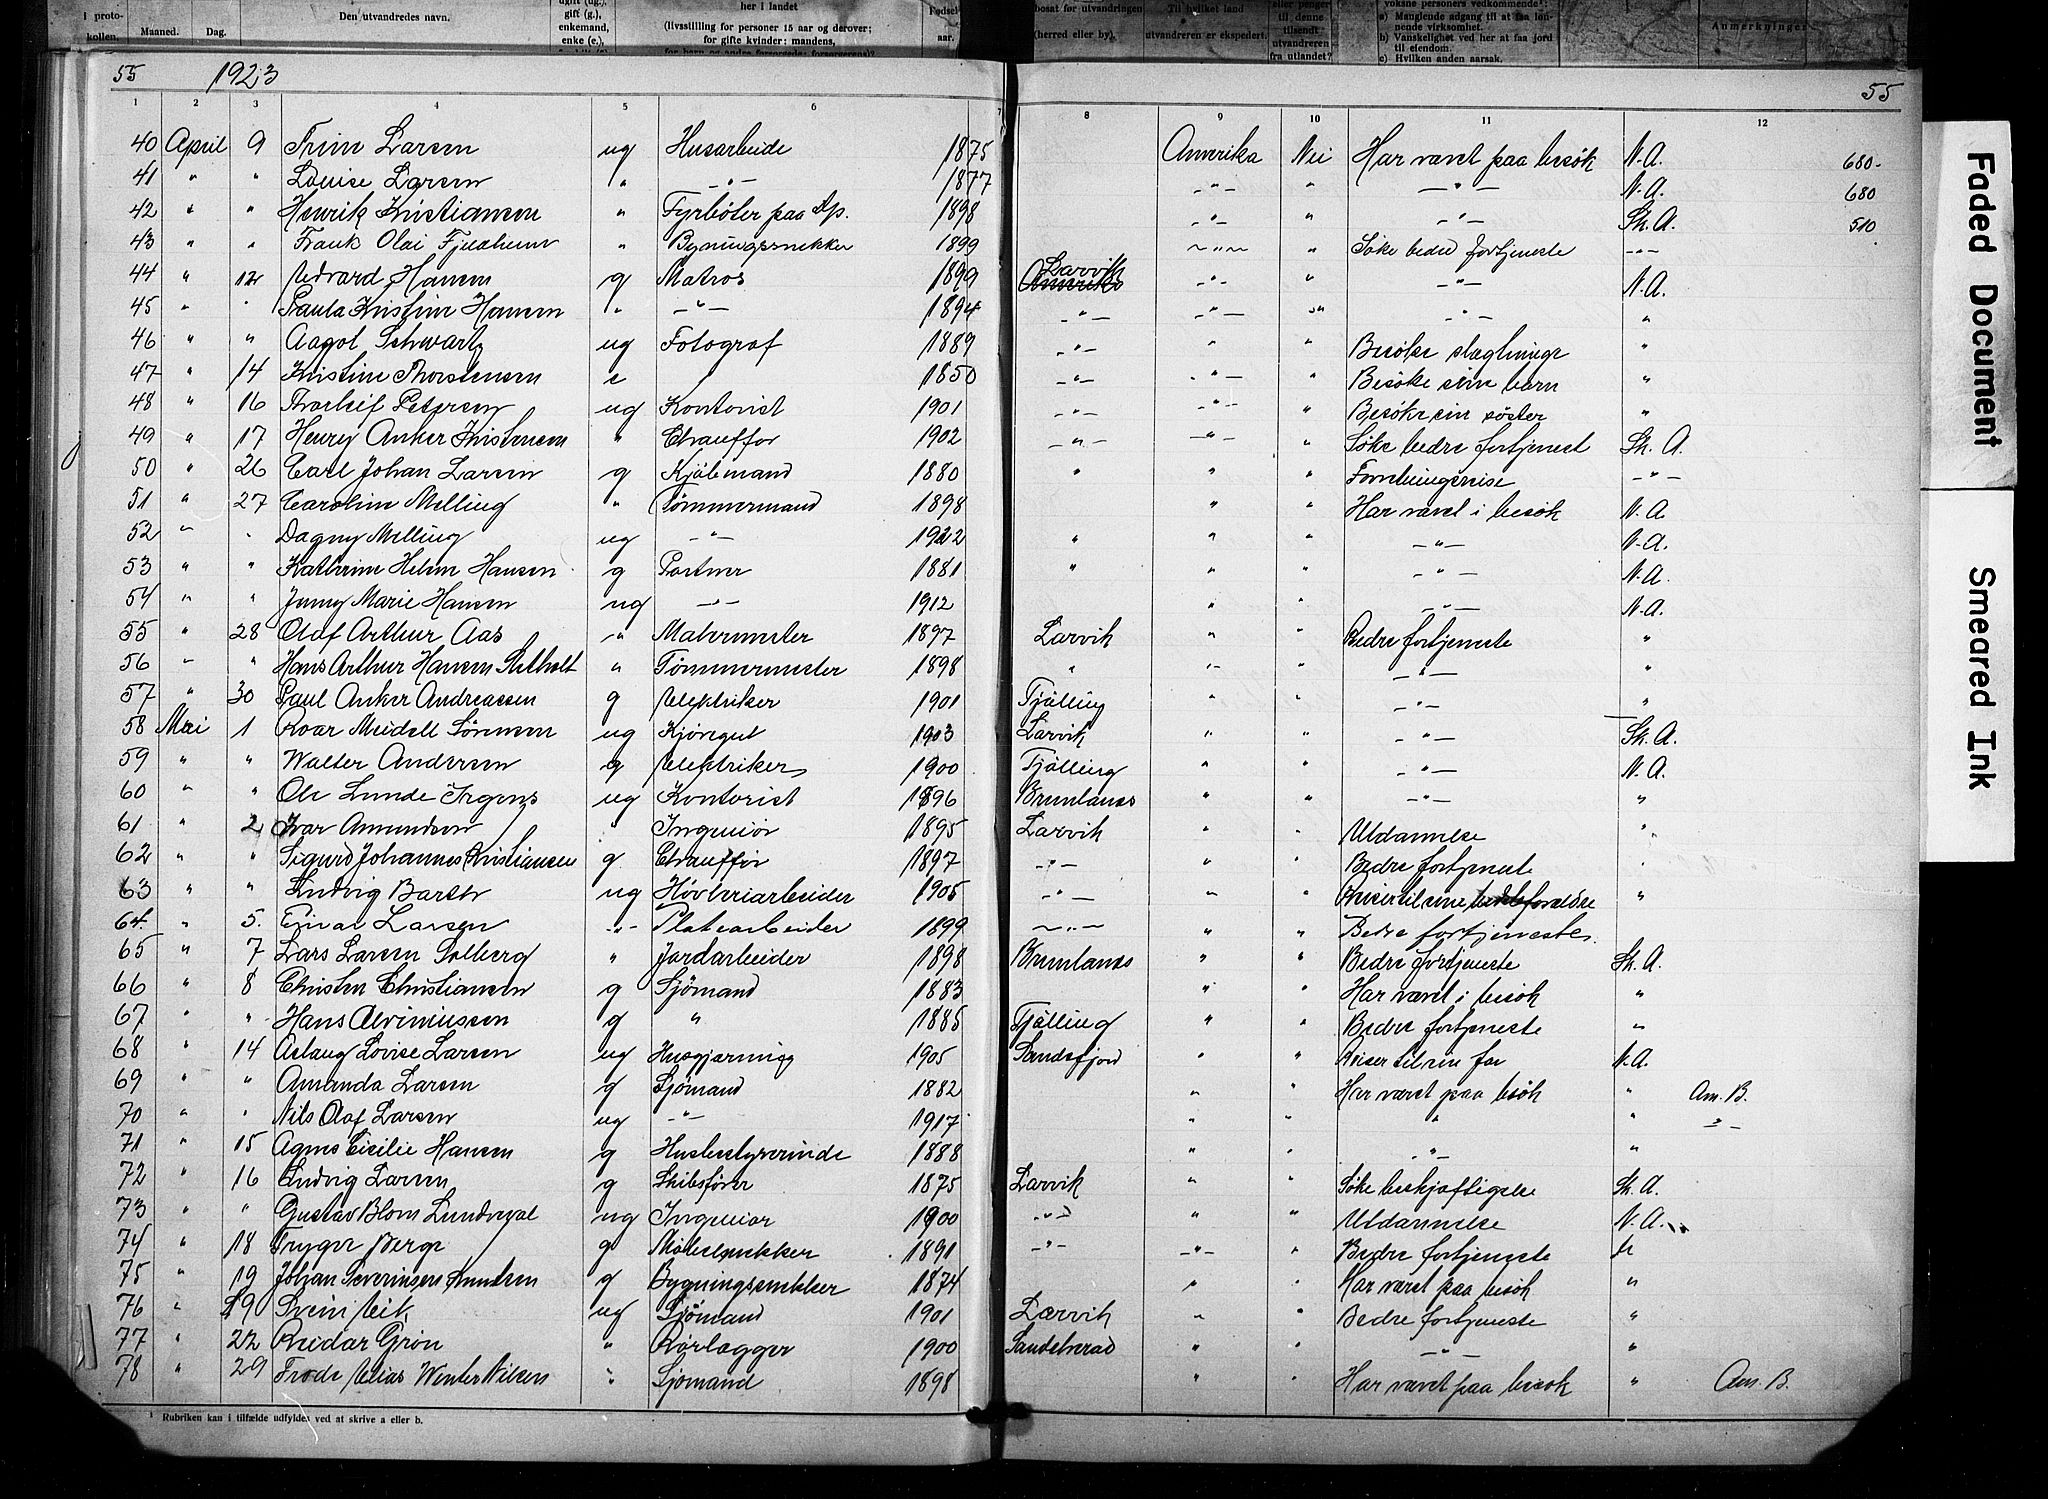 i proto-
kollen.
Maaned. Dag.
Den utvandredes navn.
gift (g.),
enkemand,
enke (e.),
her i landet
(livsstilling for personer 15 aar og derover;
for gifte kvinder: mandens,
Fødsel-
aar.
bosat før utvandringen
(herred eller by).
Til hvilket land
utvandreren er ekspedert.
eller penger
til denne
tilsendt
utvandreren
fra utlandet?
voksne personers vedkommende:
a) Manglende adgang til at faa løn-
nende virksomhet.
b) Vanskelighet ved her at faa jord
til eiendom.
c) Hvilken anden aarsak.
Anmerkninger.
55 1923 55
1 2 3 4 5 6 7 8 9 10 11 12
40 April 9 Trine Larsen ug Husarbeide 1875 Amerika Nei Har været paa besøk N.A. 680-
41 " " Louise Larsen " -"- 1877 -"- " -"- N.A. 680
42 " " Henrik Kristiansen " Fyrbøter paa Dp. 1898 -"- " -"- Sk.A. 510
43 " " Frank Olai Fjeldheim " Bygningssnekker 1899 -"- " Søke bedre fortjeneste -"-
44 " 12 Edvard Hansen g Matros 1899 Larvik Amerika -"- " -"- N.A.
45 " " Paula Kristine Hansen " -"- 1894 -"- -"- " -"- "
46 " " Aagot Schwartz ug Fotograf 1889 -"- " " Besøke slægtninge "
47 " 14 Kristine Thorstensen e 1850 -"- -"- " Besøke sine barn "
48 " 16 Thorleif Petersen ug Kontorist 1901 -"- -"- " Besøke sin søster "
49 " 17 Henry Anker Kristensen " Chauffør 1902 -"- -"- " Søke bedre fortjenest Sk.A.
50 " 26 Carl Johan Larsen g Kjøbmand 1880 " " " Forretningsreise -"-
51 " 27 Caroline Melling " Tømmermand 1898 " " Har været i besøk N.A.
52 " " Dagny Melling ug -"- 1922 " " " -"- N.A.
53 " " Kathrine Helene Hansen g Portner 1881 " " " -"- N.A.
54 " " Jenny Marie Hansen ug -"- 1912 " " -"- N.A.
55 " 28 Olaf Arthur Aas " Malermester 1897 Larvik " " Bedre fortjeneste "
56 " " Hans Arthur Hansen " Tømmermester 1898 " " " -"- "
57 " 30 Paul Anker Andreassen g Elektriker 1901 Tjølling " " -"- "
58 Mai 1 Roar Meidell Sørensen ug Kjøregut 1903 Larvik " " -"- Sk.A.
59 " " Walter Andersen g Elektriker 1900 Tjølling " " -"- N.A.
60 " " Ole Lunde Irgens ug Kontorist 1896 Brunlanes " " -"- "
61 " 2 Ivar Amundsen " Ingeniør 1895 Larvik " " Utdannelse "
62 " " Sigurd Johannes Kristiansen g Chauffør 1897 -"- " " Bedre fortjeneste "
63 " " Ludvig Barth ug Høvleriarbeider 1905 -"- " " Reiser til sine bedsteforældre "
64 " 5. Einar Larsen -"- Platearbeider 1899 -"- " " Bedre fortjeneste
65 " 7 Lars Larsen Solberg " Jordarbeider 1898 Brunlanes " " Bedre fortjeneste Sk.A.
66 " 8 Christen Christiansen g Sjømand 1883 " " Har været i besøk "
67 " " Hans g " 1885 Tjølling " " Bedre fortjeneste "
68 " 14 Aslaug Lovise Larsen ug Husgjerning 1905 Sandefjord " " Reiser til sin far N.A.
69 " " Amanda Larsen g Sjømand 1882 " " Har været paa besøk " Am.B.
70 " " Nils Olaf Larsen ug -"- 1917 " " " " -"-
71 " 15 Agnes Cecilie Hansen g Husbestyrerinde 1888 " " -"- "
72 " 16 Ludvig Larsen g Skibsfører 1875 Larvik " " Søke beskjæftigelse Sk.A.
73 " " Gustav Blom Lundeval ug Ingeniør 1900 -"- " " Utdannelse N.A.
74 " 18 Trygve Berge g Møbelsnekker 1891 -"- -"- " Bedre fortjeneste "
75 " 19 Johan Severinsen Knudsen g Bygningssnekker 1874 " " Har været paa besøk "
76 " 19 Svein Eik ug Sjømand 1901 Larvik " " Bedre fortjeneste "
77 " 22 Reidar Grøn " Rørlægger 1900 Sandeherad " " -"- "
78 " 29 Frode Elias Winter Nilsen " Sjømand 1898 " " Har været paa besøk " Am.B.
1 Rubriken kan i tilfælde utfyldes ved at skrive a eller b.
Faded Document
Smeared Ink